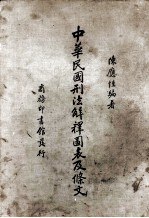 陳應性編者
中華民國刑法解釋圖表及條文
商務印書館發行